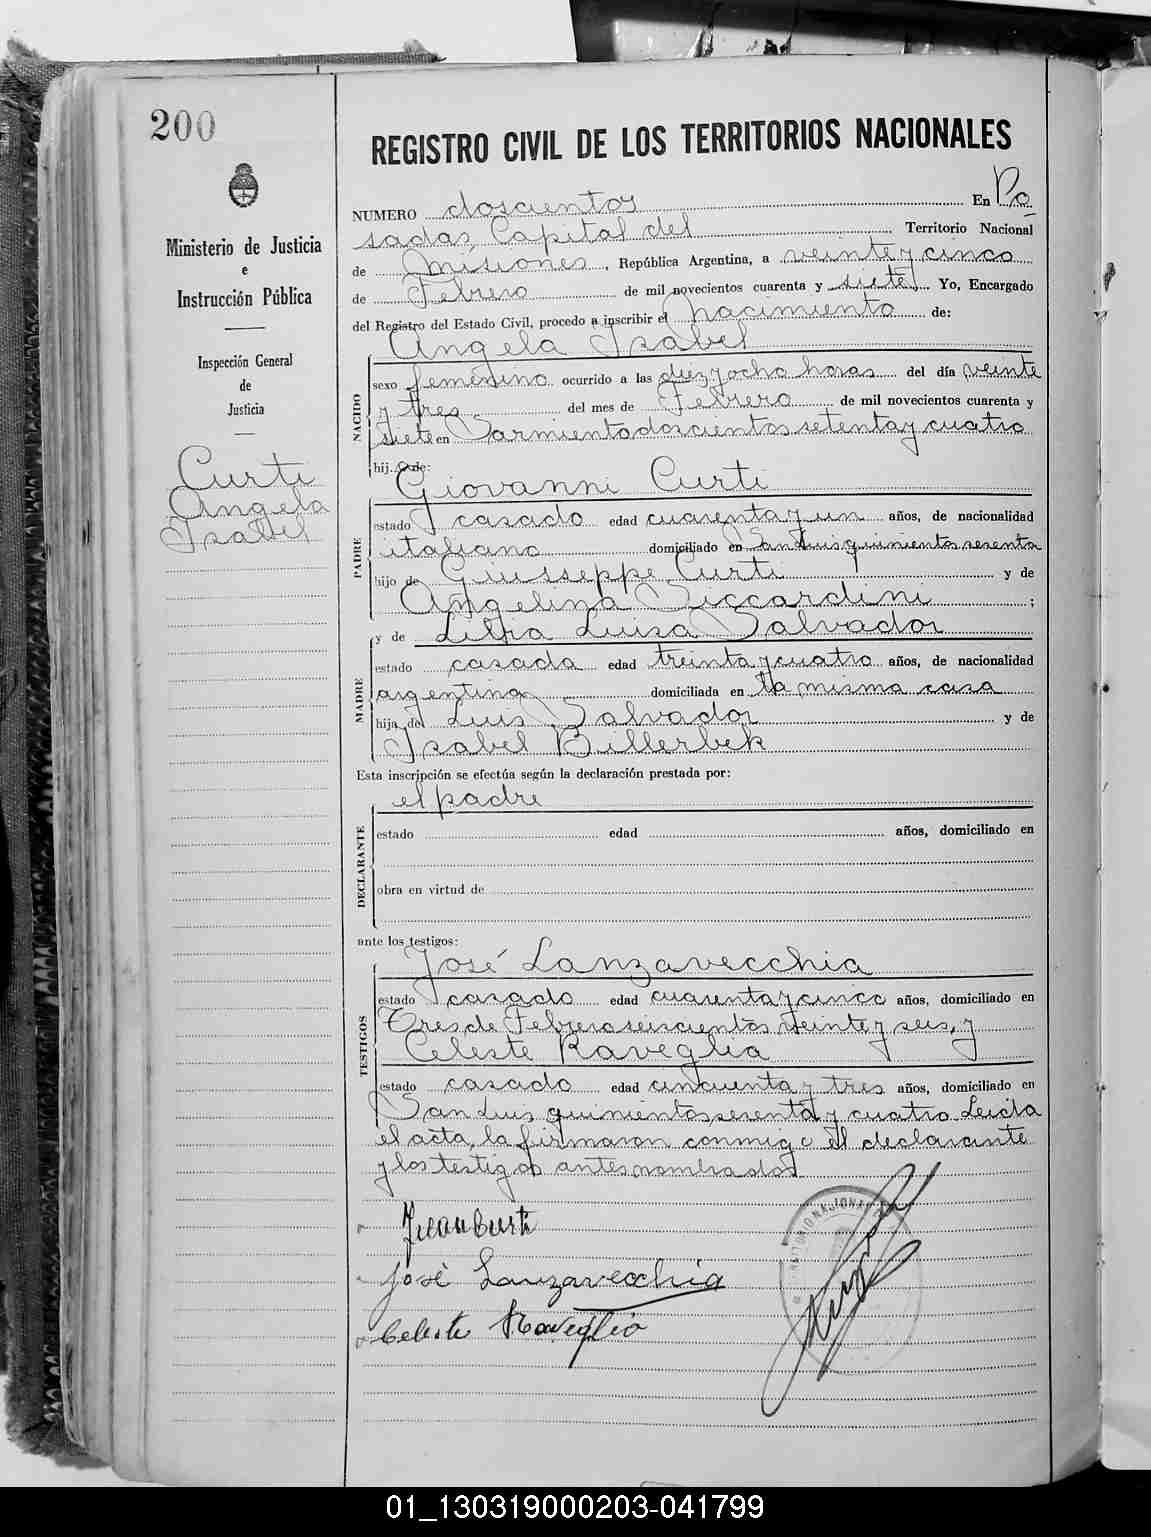 200
Ministerio de Justicia
e
Instrucción Pública
Inspección General
de
Justicia
Curti
Angela
Isabel
REGISTRO CIVIL DE LOS TERRITORIOS NACIONALES
NUMERO doscientos En Po
sadas, Capital del Territorio Nacional
de Misiones, República Argentina, a veinte y cinco
de Febrero de mil novecientos cuarenta y siete Yo, Encargado
del Registro del Estado Civil, procedo a inscribir el nacimiento de:
Angela Isabel
NACIDO
sexo femenino ocurrido a las diez y ocho horas del día veinte
y tres del mes de Febrero de mil novecientos cuarenta y
siete en Sarmiento doscientos setenta y cuatro
hij a de:
Giovanni Curti
PADRE
estado casado edad cuarenta y un años, de nacionalidad
italiano domiciliado en San Luis quinientos sesenta
hijo de Giusseppe Curti y de
Angelina Siccardini ;
y de Lilia Luisa Salvador
MADRE
estado casada edad treinta y cuatro años, de nacionalidad
argentina domiciliada en la misma casa
hija de Luis Salvador y de
Isabel Billerbek
Esta inscripción se efectúa según la declaración prestada por:
el padre
DECLARANTE
estado edad años, domiciliado en
obra en virtud de
ante los testigos:
José Lanzavecchia
TESTIGOS
estado casado edad cuarenta y cinco años, domiciliado en
Tres de Febrero seiscientos veinte y seis, y
Celeste Raveglia
estado casado edad cincuenta y tres años, domiciliado en
San Luis quinientos sesenta y cuatro Leida
el acta, la firmaron conmigo el declarante
y los testigos antes nombrados
Juan Curti
José Lanzavecchia
Celeste Raveglia
01_130319000203-041799